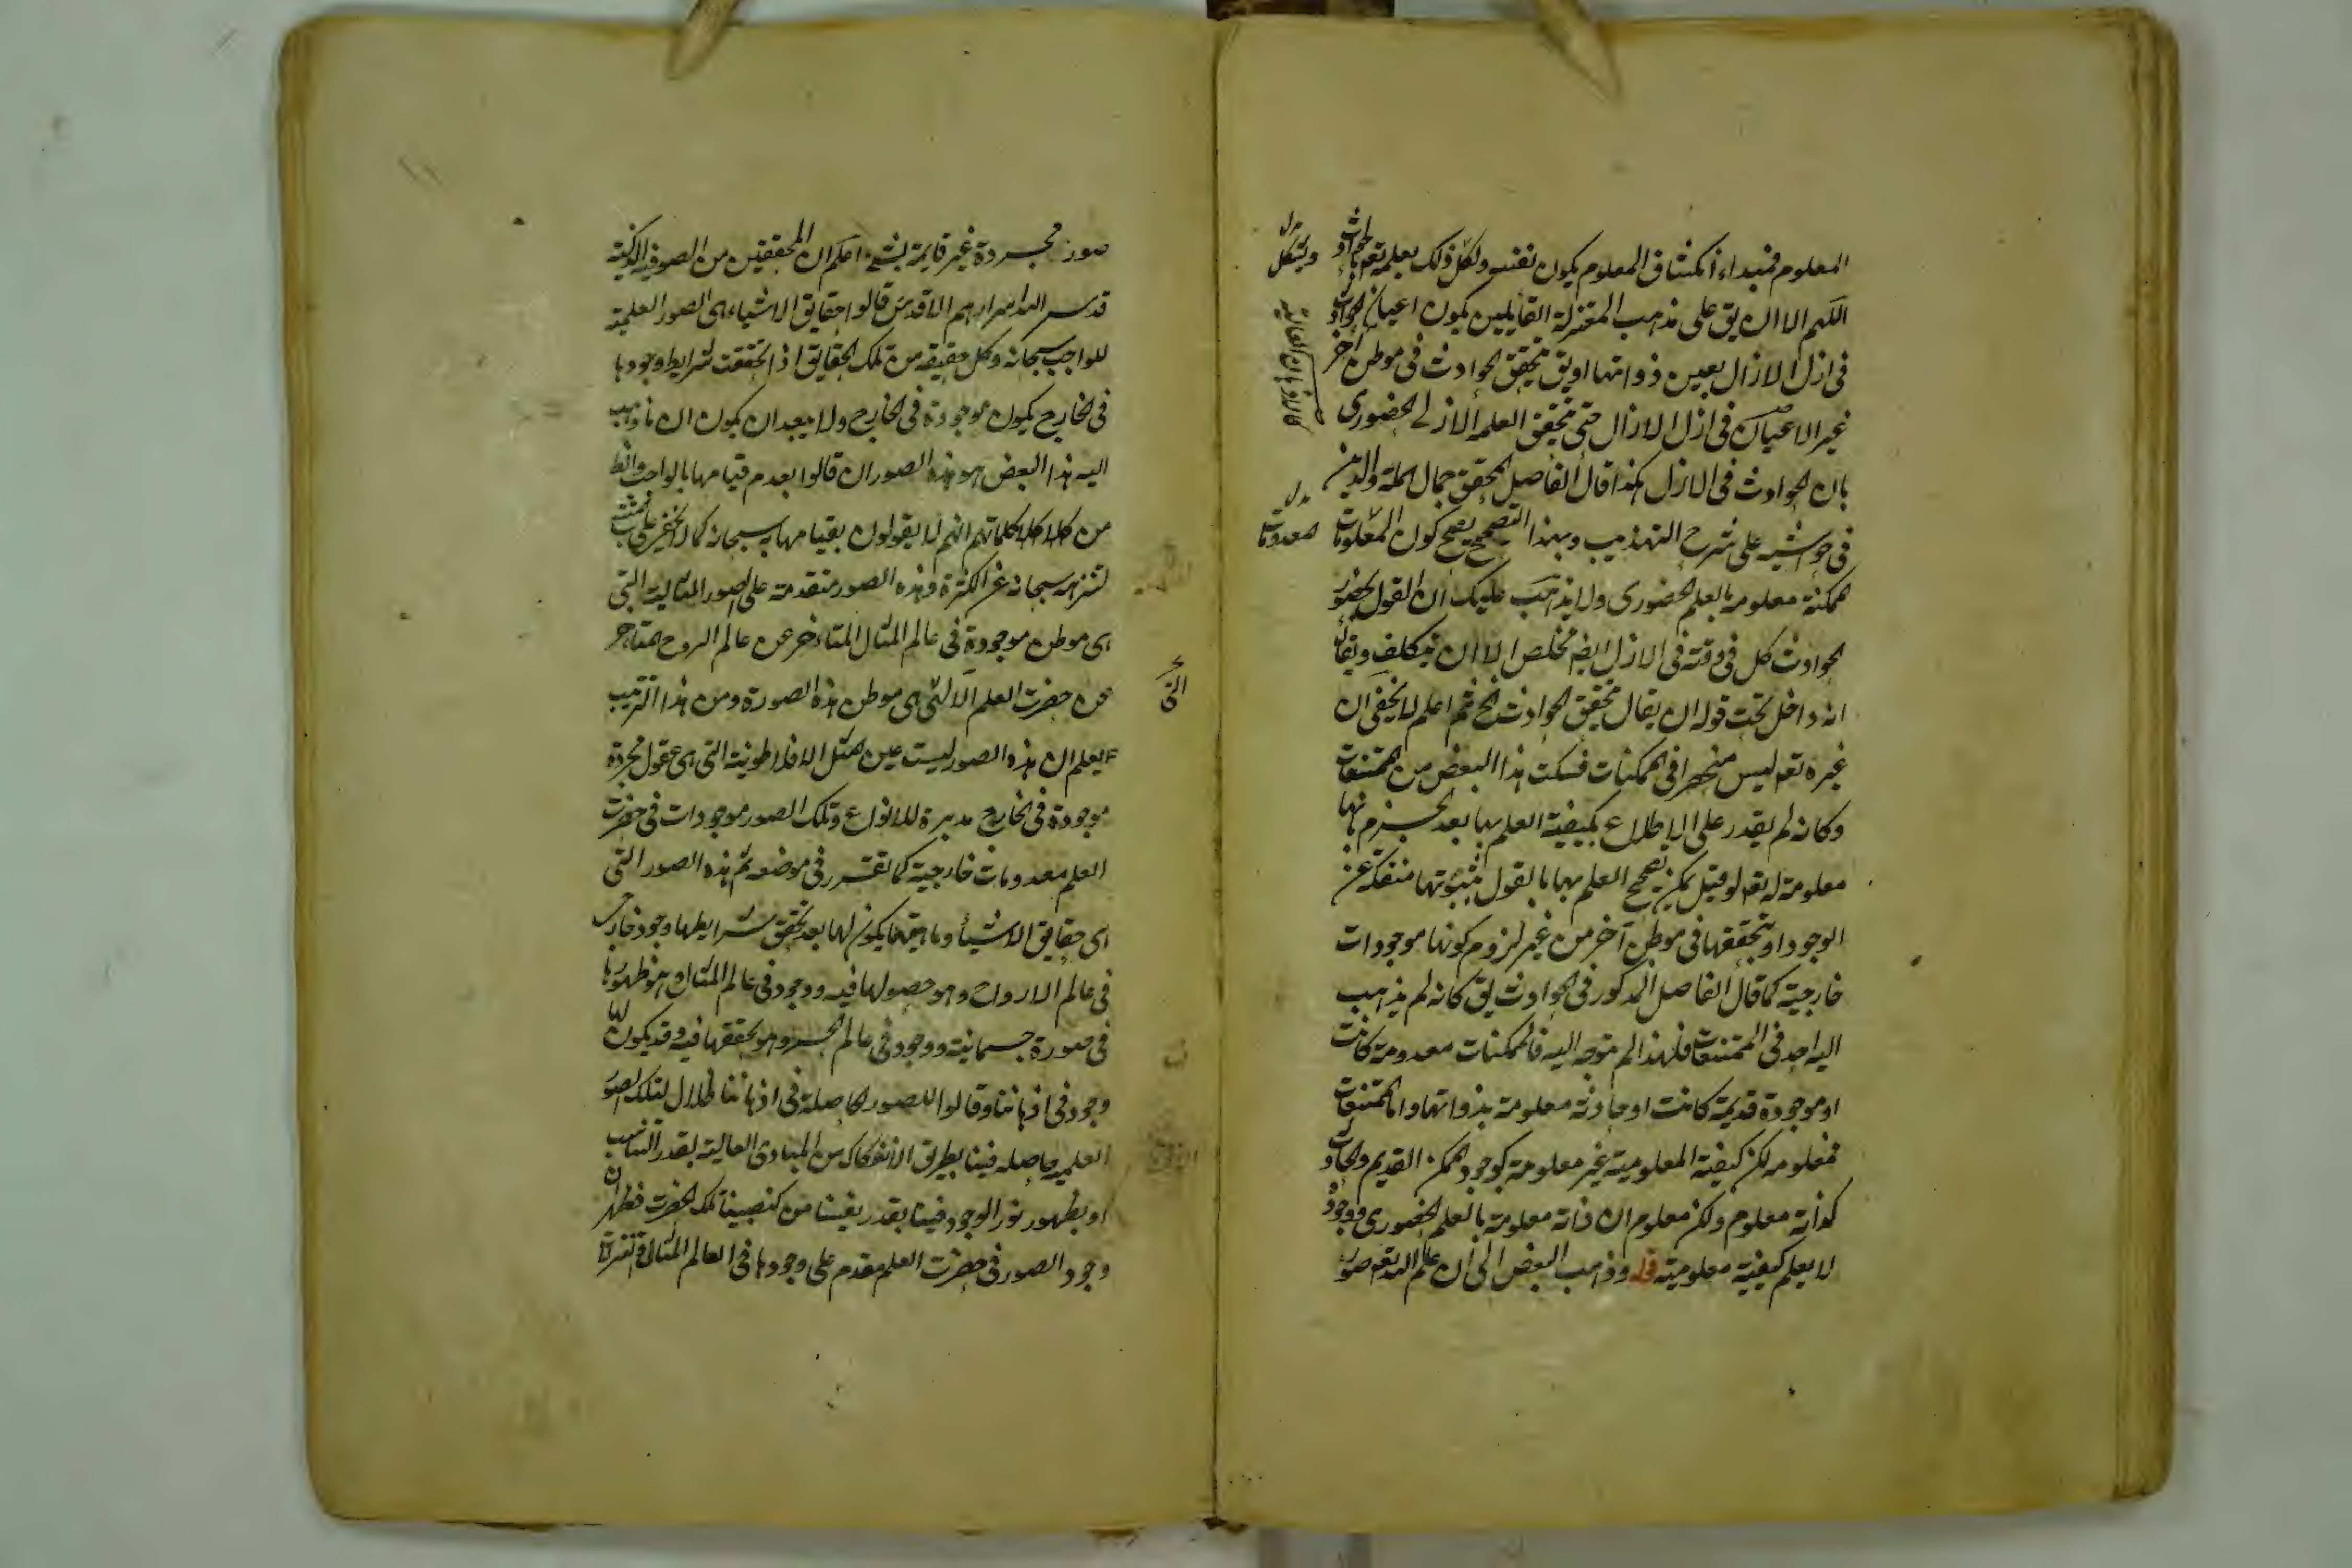 المعلوم فمبداء انكشاف المعلوم يكون نفسه ولكل ذلك بعلمه تعم بالحوادث
اللهم الا ان يق على مذهب المعتزلة القايلين بكون اعيان الحوادث
فى ازل الازال بعين ذواتها او يق بتحقق الحوادث فى موطن آخر
غير الاعيان فى ازل الازال حتى يتحقق العلم الازلى الحضورى
بان الحوادث فى الازل هكذا قال الفاضل المحقق جمال الملة والدين
فى حواشيه على شرح التهذيب وبهذا التصحيح يصح كون المعلومات
ممكنة معلومة بالعلم الحضورى ولا يذهب عليك ان القول بحضور
الحوادث كل فى وقته فى الازل ايضا مخلص الا ان يتكلف ويقال
انه داخل تحت قوله ان يقال بتحقق الحوادث الخ ثم اعلم لا يخفى ان
غيره تعم ليس منحصرا فى الممكنات فسكت هذا البعض من الممتنعات
وكانه لم يقدر على الاطلاع بكيفية العلم بها بعد الجزم بانها
معلومة له تعم لو قيل يمكن تصحيح العلم بها بالقول بثبوتها منفكة عن
الوجود او بتحققها فى موطن آخر من غير لزوم كونها موجودات
خارجية كما قال الفاضل المذكور فى الحوادث يق كانه لم يذهب
اليه احد فى الممتنعات فلهذا لم يتوجه اليه فالممكنات معدومة كانت
او موجودة قديمة كانت او حادثة معلومة بذواتها واما الممتنعات
فمعلومه لكن كيفية المعلومية غير معلومة كوجود الممكن القديم والحادث
كذاته معلوم ولكن معلوم ان ذاته معلومة بالعلم الحضورى ووجوده
لا يعلم كيفية معلوميته قوله وذهب البعض الى ان علم الله تعم صور
معدومات
صور مجردة غير قايمة بشئ اعلم ان المحققين من الصوفية الزكية
قدس الله اسرارهم الاقدس قالوا حقايق الاشياء هى الصور العلمية
للواجب سبحانه وكل حقيقه من تلك الحقايق اذا تحققت شرايط وجودها
فى الخارج يكون موجودة فى الخارج ولا يبعد ان يكون ان ما ذهب
اليه هذا البعض هو هذه الصور ان قالوا بعدم قيامها بالواجب والظ
من كلماتهم انهم لا يقولون بقيامها به سبحانه كما لا يخفى على
لتنزهه سبحانه عن الكثرة وهذه الصور متقدمة على الصور المثالية التى
هى موطن موجودة فى عالم المثال المتاخر عن عالم الروح المتاخر
عن حضرت العلم التى هى موطن هذه الصورة ومن هذا الترتيب
يعلم ان هذه الصور ليست عين المثل الافلاطونية التى هى عقول مجردة
موجودة فى الخارج مدبرة للانواع وتلك الصور موجودات فى حضرت
العلم معدومات خارجية كما تقرر فى موضعه ثم هذه الصور التى
هى حقايق الاشياء وماهيتها يكون لها بعد تحقق شرايطها وجود خارجى
فى عالم الارواح وهو حصولها فيه ووجود فى عالم المثال وهو ظهورها
فى صورة جسمانية ووجود فى عالم الحس وهو تحققها فيه وقد يكون لها
وجود فى اذهاننا وقالوا للصور الحاصلة فى اذهاننا ظلال لتلك الصور
العلميه حاصله فينا بطريق الانعكاس من المبادى العالية بقدر التناسب
او بظهور نور الوجود فينا بقدر نصيبنا من تلك الحضرت فظهر ان
وجود الصور فى حضرت العلم مقدم على وجودها فى العالم المثال